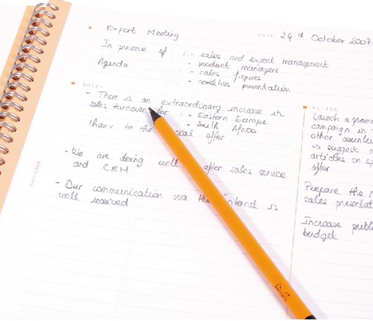 Export Meeting
24 th October 2007
In presence of : - sales and export management
- product managers
Agenda - sales figures
- novelties presentation
NOTES
- There is an extraordinary increase in
sales turnover for : - Eastern Europe
- South Africa
Thanks to the special offer
- We are doing well after sales service
and CRM
- Our communication via the internet is
well received
ACTION
Launch a
campaign in
other
to suggest
articles on
offer
Prepare the
sales presentation
Increase
budget